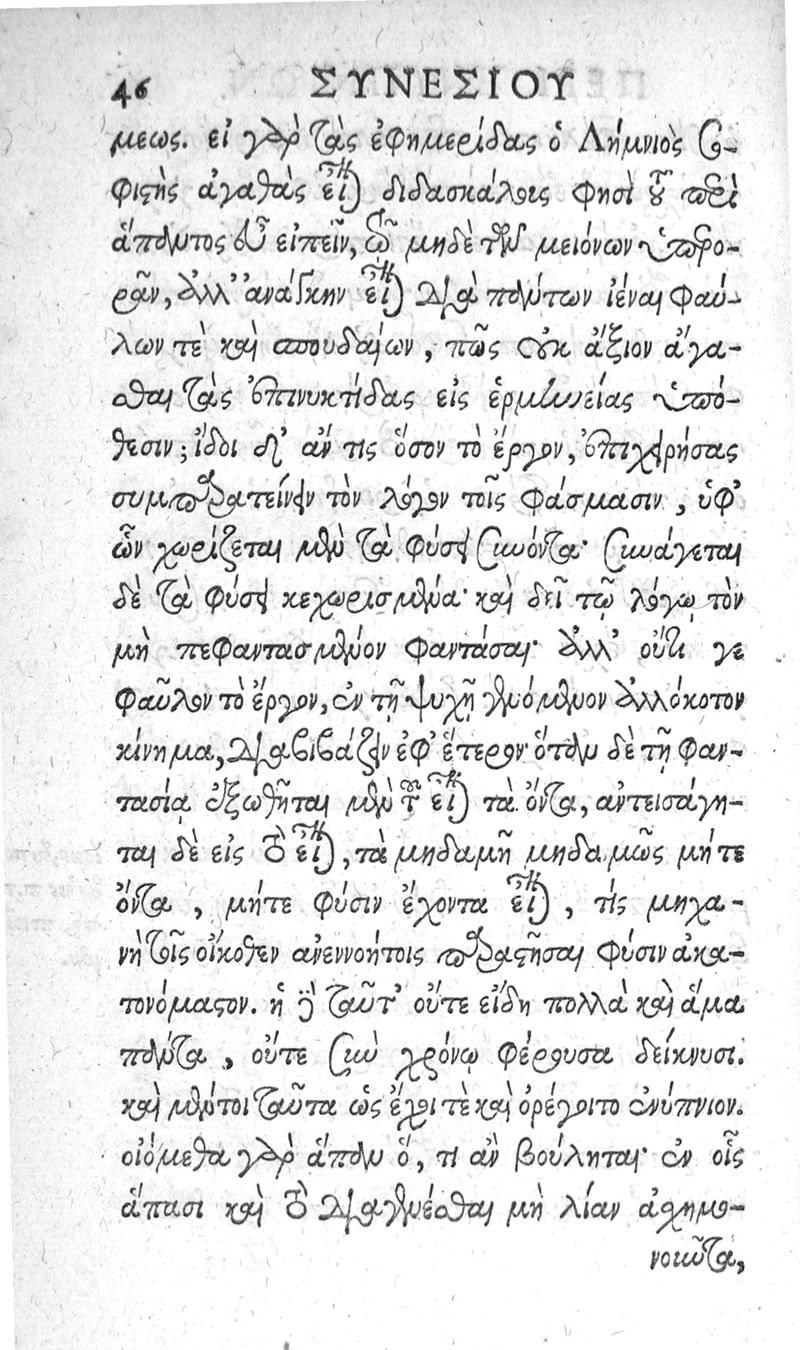 46 ΣΥΝΕΣΙΟΥ
μεως. εἰ γὰρ τὰς ἐφημερίδας ὁ Λήμνιος σο-
φιστὴς ἀγαθὰς εἶναι διδασκάλους φησὶ τοῦ περὶ
ἅπαντος εὖ εἰπεῖν, τῷ μηδὲ τῶν μειόνων ὑπερο-
ρᾶν, ἀλλ' ἀνάγκην εἶναι διὰ πάντων ἰέναι φαύ-
λων τὲ καὶ σπουδαίων, πῶς οὐκ ἄξιον ἄγα-
σθαι τὰς ἐπινυκτίδας εἰς ἑρμηνείας ὑπό-
θεσιν; ἴδοι δ' ἄν τις ὅσον τὸ ἔργον, ἐπιχειρήσας
συμπαρατείνειν τὸν λόγον τοῖς φάσμασιν, ὑφ'
ὧν χωρίζεται μὲν τὰ φύσει συνόντα· συνάγεται
δὲ τὰ φύσει κεχωρισμένα· καὶ δεῖ τῷ λόγῳ τὸν
μὴ πεφαντασμένον φαντάσαι· ἀλλ' οὔτι γε
φαῦλον τὸ ἔργον, ἐν τῇ ψυχῇ γενόμενον ἀλλόκοτον
κίνημα, διαβιβάζειν ἐφ' ἕτερον· ὅταν δὲ τῇ φαν-
τασίᾳ ἐξωθῆται μὲν τοῦ εἶναι τὰ ὄντα, ἀντεισάγη-
ται δὲ εἰς τὸ εἶναι, τὰ μηδαμῆ μηδαμῶς μήτε
ὄντα, μήτε φύσιν ἔχοντα εἶναι, τίς μηχα-
νὴ τοῖς οἴκοθεν ἀνεννοήτοις παραστῆσαι φύσιν ἀκα-
τονόμαστον. ἡ δὲ ταῦτ' οὔτε εἴδη πολλὰ καὶ ἅμα
πάντα, οὔτε σὺν χρόνῳ φέρουσα δείκνυσι.
καὶ μέντοι ταῦτα ὡς ἔχοι τὲ καὶ ὀρέγοιτο ἐνύπνιον.
οἰόμεθα γὰρ ἅπαν ὅ, τι ἂν βούληται· ἐν οἷς
ἅπασι καὶ τὸ διαγενέσθαι μὴ λίαν ἀσχημο-
νοῦντα,